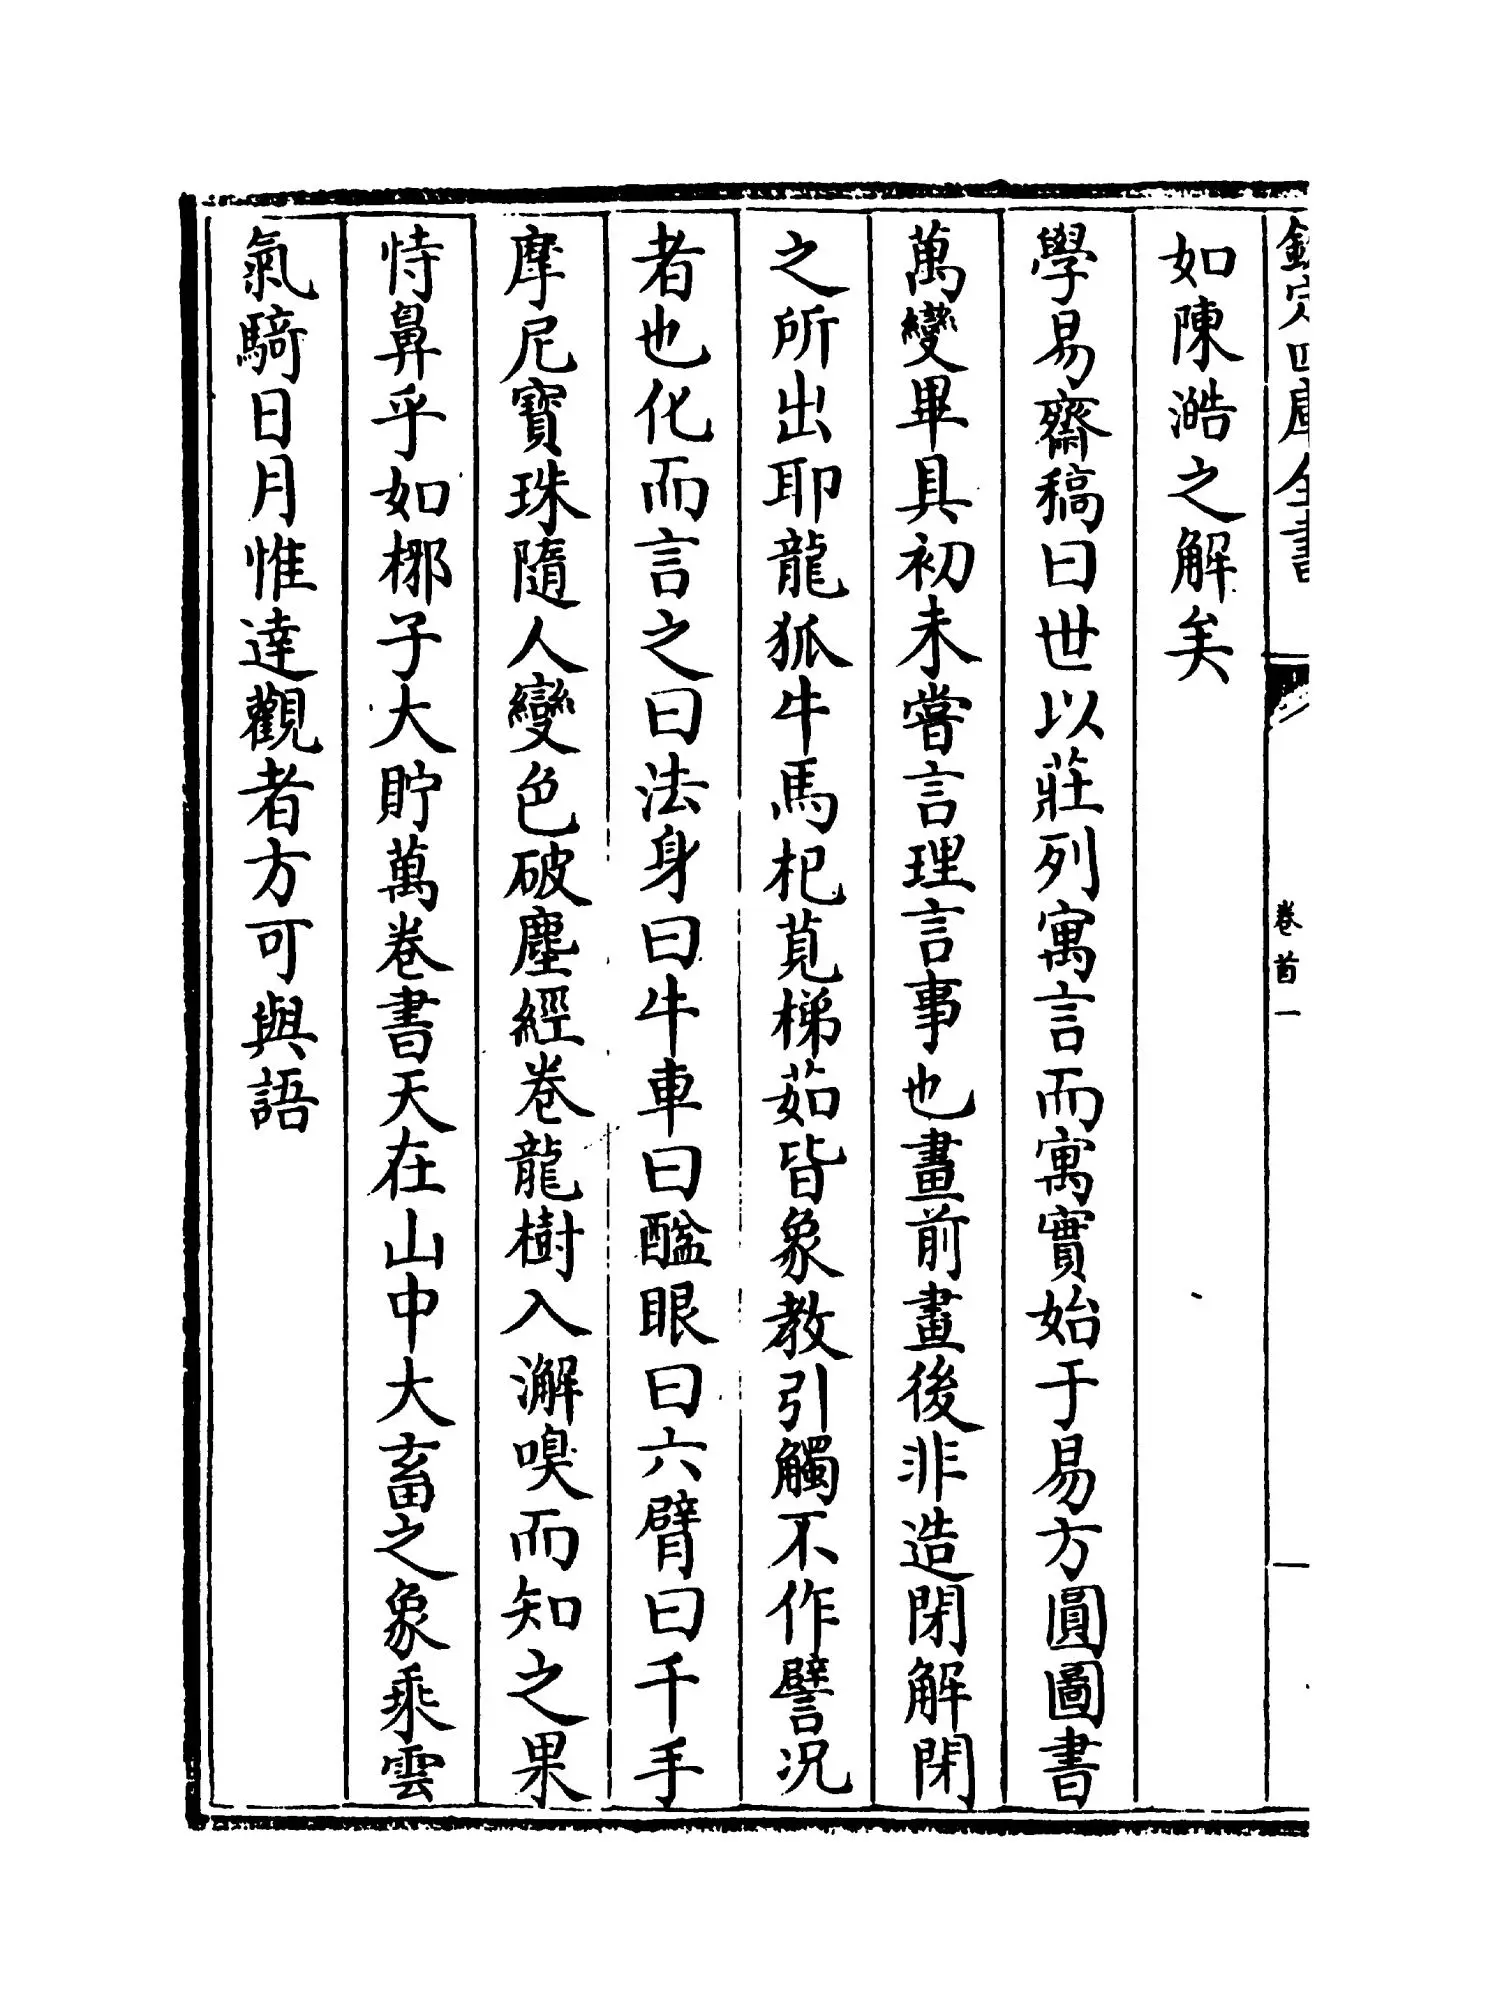 欽定四庫全書
卷首一
如陳澔之解矣
學易齋稿曰世以莊列寓言而寓實始于易方圓圖書
萬變畢具初未嘗言理言事也畫前畫後非造閉解閉
之所出耶龍狐牛馬杞莧梯茹皆象教引觸不作譬況
者也化而言之曰法身曰牛車曰醯眼曰六臂曰千手
摩尼寶珠隨人變色破塵經卷龍樹入澥嗅而知之果
恃鼻乎如梛子大貯萬卷書天在山中大畜之象乘雲
氣騎日月惟達觀者方可與語